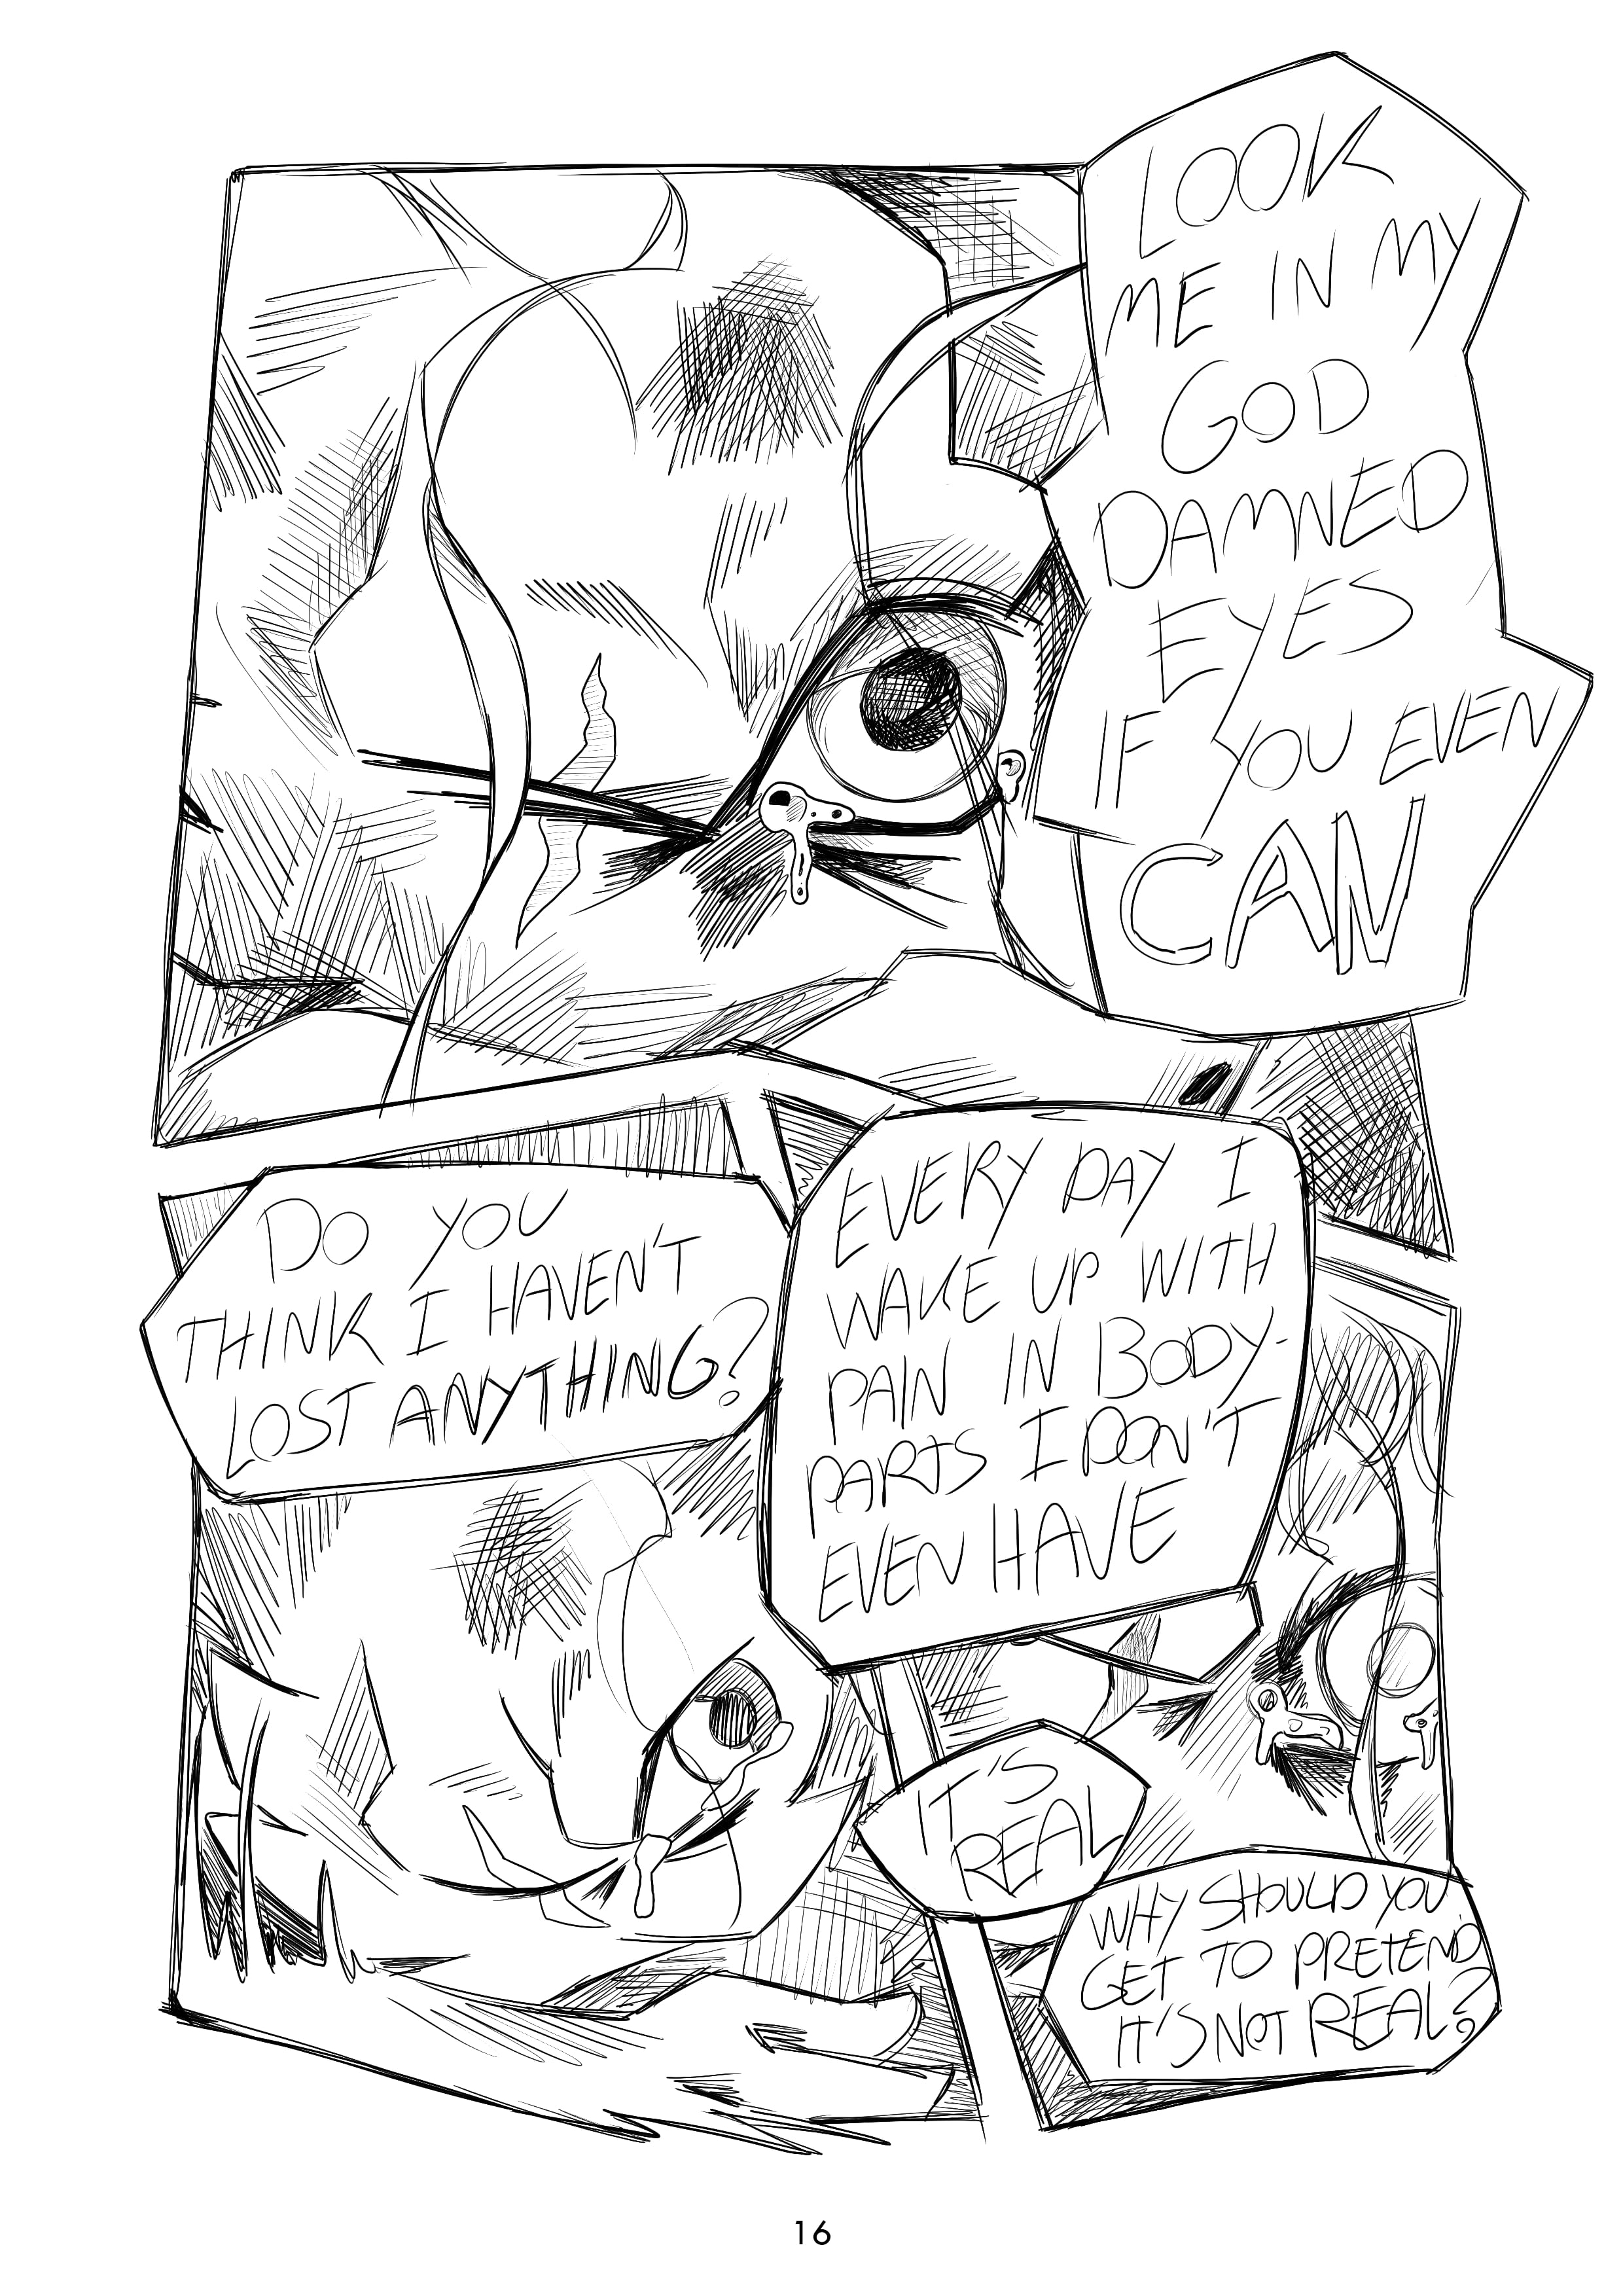 LOOK
ME IN MY
GOD
DAMNED
EYES
IF YOU EVEN
CAN
DO YOU
THINK I HAVEN'T
LOST ANYTHING?
EVERY DAY I
WAKE UP WITH
PAIN IN BODY-
PARTS I DON'T
EVEN HAVE
IT'S
REAL
WHY SHOULD YOU
GET TO PRETEND
IT'S NOT REAL?
16